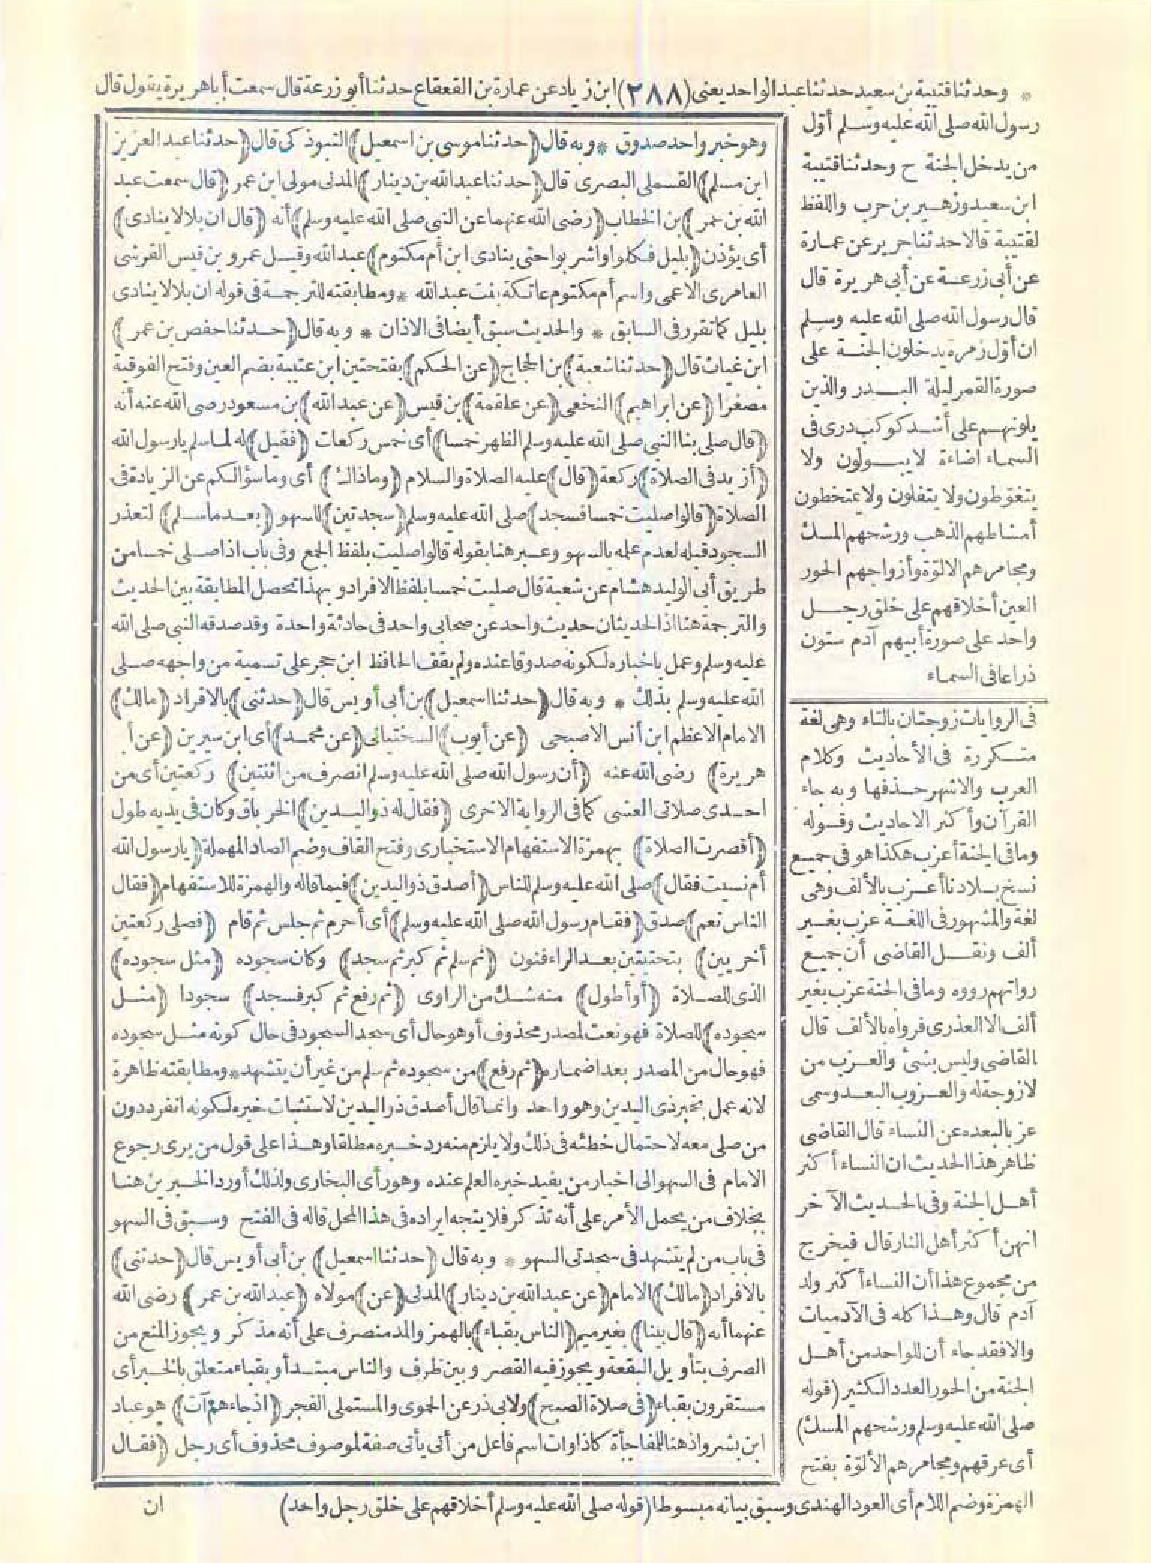 * وحدثنا قتيبة بن سعيد حدثنا عبد الواحد يعنى (٢٨٨) ابن زياد عن عمارة بن القعقاع حدثنا أبو زرعة قال سمعت أبا هريرة يقول قال
رسول الله صلى الله عليه وسلم أوّل
من يدخل الجنة ح وحدثنا قتيبة
ابن سعيد وزهير بن حرب واللفظ
لقتيبة قالا حدثنا جرير عن عمارة
عن أبى زرعة عن أبى هريرة قال
قال رسول الله صلى الله عليه وسلم
ان أوّل زمرة يدخلون الجنة على
صورة القمر ليلة البدر والذين
يلونهم على أشد كوكب درى فى
السماء اضاءة لا يبولون ولا
يتغوّطون ولا يتفلون ولا يمتخطون
أمشاطهم الذهب ورشحهم المسك
ومجامرهم الالوّة وأزواجهم الحور
العين أخلاقهم على خلق رجل
واحد على صورة أبيهم آدم ستون
ذراعا فى السماء
فى الروايات زوجتان بالتاء وهى لغة
متكررة فى الأحاديث وكلام
العرب والاشهر حذفها وبه جاء
القرآن وأكثر الاحاديث وقوله
وما فى الجنة أعزب هكذا هو فى جميع
نسخ بلادنا أعزب بالألف وهى
لغة والمشهور فى اللغة عزب بغير
ألف ونقل القاضى أن جميع
رواتهم رووه وما فى الجنة عزب بغير
ألف الا العذرى فرواه بالألف قال
القاضى وليس بشئ والعزب من
لا زوجة له والعزوب البعد وسمى
عزبا لبعده عن النساء قال القاضى
ظاهر هذا الحديث ان النساء أكثر
أهل الجنة وفى الحديث الآخر
انهن أكثر أهل النار قال فيخرج
من مجموع هذا أن النساء أكثر ولد
آدم قال وهذا كله فى الآدميات
والا فقد جاء أن للواحد من أهل
الجنة من الحور العدد الكثير (قوله
صلى الله عليه وسلم ورشحهم المسك)
أى عرقهم ومجامرهم الألوّة بفتح
الهمزة وضم اللام أى العود الهندى وسبق بيانه مبسوطا (قوله صلى الله عليه وسلم أخلاقهم على خلق رجل واحد) ان
وهو خبر واحد صدوق * وبه قال (حدثنا موسى بن اسمعيل) التبوذكى قال (حدثنا عبد العزيز
ابن مسلم) القسملى البصرى قال (حدثنا عبد الله بن دينار) المدنى مولى ابن عمر (قال سمعت عبد
الله بن عمر) بن الخطاب (رضى الله عنهما عن النبى صلى الله عليه وسلم) أنه (قال ان بلالا ينادى)
أى يؤذن (بليل فكلوا واشربوا حتى ينادى ابن أم مكتوم) عبد الله وقيل عمرو بن قيس القرشى
العامرى الاعمى واسم أم مكتوم عاتكة بنت عبد الله * ومطابقته للترجمة فى قوله ان بلالا ينادى
بليل كما تقرر فى السابق * والحديث سبق أيضا فى الاذان * وبه قال (حدثنا حفص بن عمر)
ابن غياث قال (حدثنا شعبة) بن الحجاج (عن الحكم) بفتحتين ابن عتيبة بضم العين وفتح الفوقية
مصغرا (عن ابراهيم) النخعى (عن علقمة) بن قيس (عن عبد الله) بن مسعود رضى الله عنه أنه
(قال صلى بنا النبى صلى الله عليه وسلم الظهر خمسا) أى خمس ركعات (فقيل) له لما سلم يا رسول الله
(أزيد فى الصلاة) ركعة (قال) عليه الصلاة والسلام (وما ذاك) أى وما سؤالكم عن الزيادة فى
الصلاة (قالوا صليت خمسا فسجد) صلى الله عليه وسلم (سجدتين) للسهو (بعد ما سلم) لتعذر
السجود قبله لعدم علمه بالسهو وعبر هنا بقوله قالوا صليت بلفظ الجمع وفى باب اذا صلى خمسا من
طريق أبى الوليد هشام عن شعبة قال صليت خمسا بلفظ الافراد وبهذا تحصل المطابقة بين الحديث
والترجمة هنا اذ الحديثان حديث واحد عن صحابى واحد فى حادثة واحدة وقد صدقه النبى صلى الله
عليه وسلم وعمل باخباره لكونه صدوقا عنده ولم يقف الحافظ ابن حجر على تسمية من واجهه صلى
الله عليه وسلم بذلك * وبه قال (حدثنا اسمعيل) بن أبى أويس قال (حدثنى) بالافراد (مالك)
الامام الاعظم ابن أنس الاصبحى (عن أيوب) السختيانى (عن محمد) أى ابن سيرين (عن أبى
هريرة) رضى الله عنه (أن رسول الله صلى الله عليه وسلم انصرف من اثنتين) ركعتين أى من
احدى صلاتى العشى كما فى الرواية الاخرى (فقال له ذو اليدين) الخرباق وكان فى يديه طول
(أقصرت الصلاة) بهمزة الاستفهام الاستخبارى وفتح القاف وضم الصاد المهملة (يا رسول الله
أم نسيت فقال) صلى الله عليه وسلم للناس (أصدق ذو اليدين) فيما قاله والهمزة للاستفهام (فقال
الناس نعم) صدق (فقام رسول الله صلى الله عليه وسلم) أى أحرم ثم جلس ثم قام (فصلى ركعتين
أخريين) بتحتيتين بعد الراء فنون (ثم سلم ثم كبر ثم سجد) وكان سجوده (مثل سجوده)
الذى للصلاة (أو أطول) منه شك من الراوى (ثم رفع ثم كبر فسجد) سجودا (مثل
سجوده) للصلاة فهو نعت لمصدر محذوف أو هو حال أى سجد السجود فى حال كونه مثل سجوده
فهو حال من المصدر بعد اضماره (ثم رفع) من سجوده ثم سلم من غير أن يتشهد * ومطابقته ظاهرة
لانه عمل بخبر ذى اليدين وهو واحد وانما قال أصدق ذو اليدين لاستثبات خبره لكونه انفرد دون
من صلى معه لاحتمال خطئه فى ذلك ولا يلزم منه رد خبره مطلقا وهذا على قول من يرى رجوع
الامام فى السهو الى اخبار من يفيد خبره العلم عنده وهو رأى البخارى ولذلك أورد الخبرين هنا
بخلاف من يحمل الأمر على أنه تذكر فلا يتجه ايراده فى هذا المحل قاله فى الفتح وسبق فى السهو
فى باب من لم يتشهد فى سجدتى السهو * وبه قال (حدثنا اسمعيل) بن أبى أويس قال (حدثنى)
بالافراد (مالك) الامام (عن عبد الله بن دينار) المدنى (عن) مولاه (عبد الله بن عمر) رضى الله
عنهما أنه (قال بينا) بغير ميم (الناس بقباء) بالهمز والمد منصرف على أنه مذكر ويجوز المنع من
الصرف بتأويل البقعة ويجوز فيه القصر وبين ظرف والناس مبتدأ وبقباء متعلق بالخبر أى
مستقرون بقباء (فى صلاة الصبح) ولابى ذر عن الحموى والمستملى الفجر (اذ جاءهم آت) هو عباد
ابن بشر واذ هنا للمفاجأة كاذا وآت اسم فاعل من أتى يأتى صفة لموصوف محذوف أى رجل (فقال